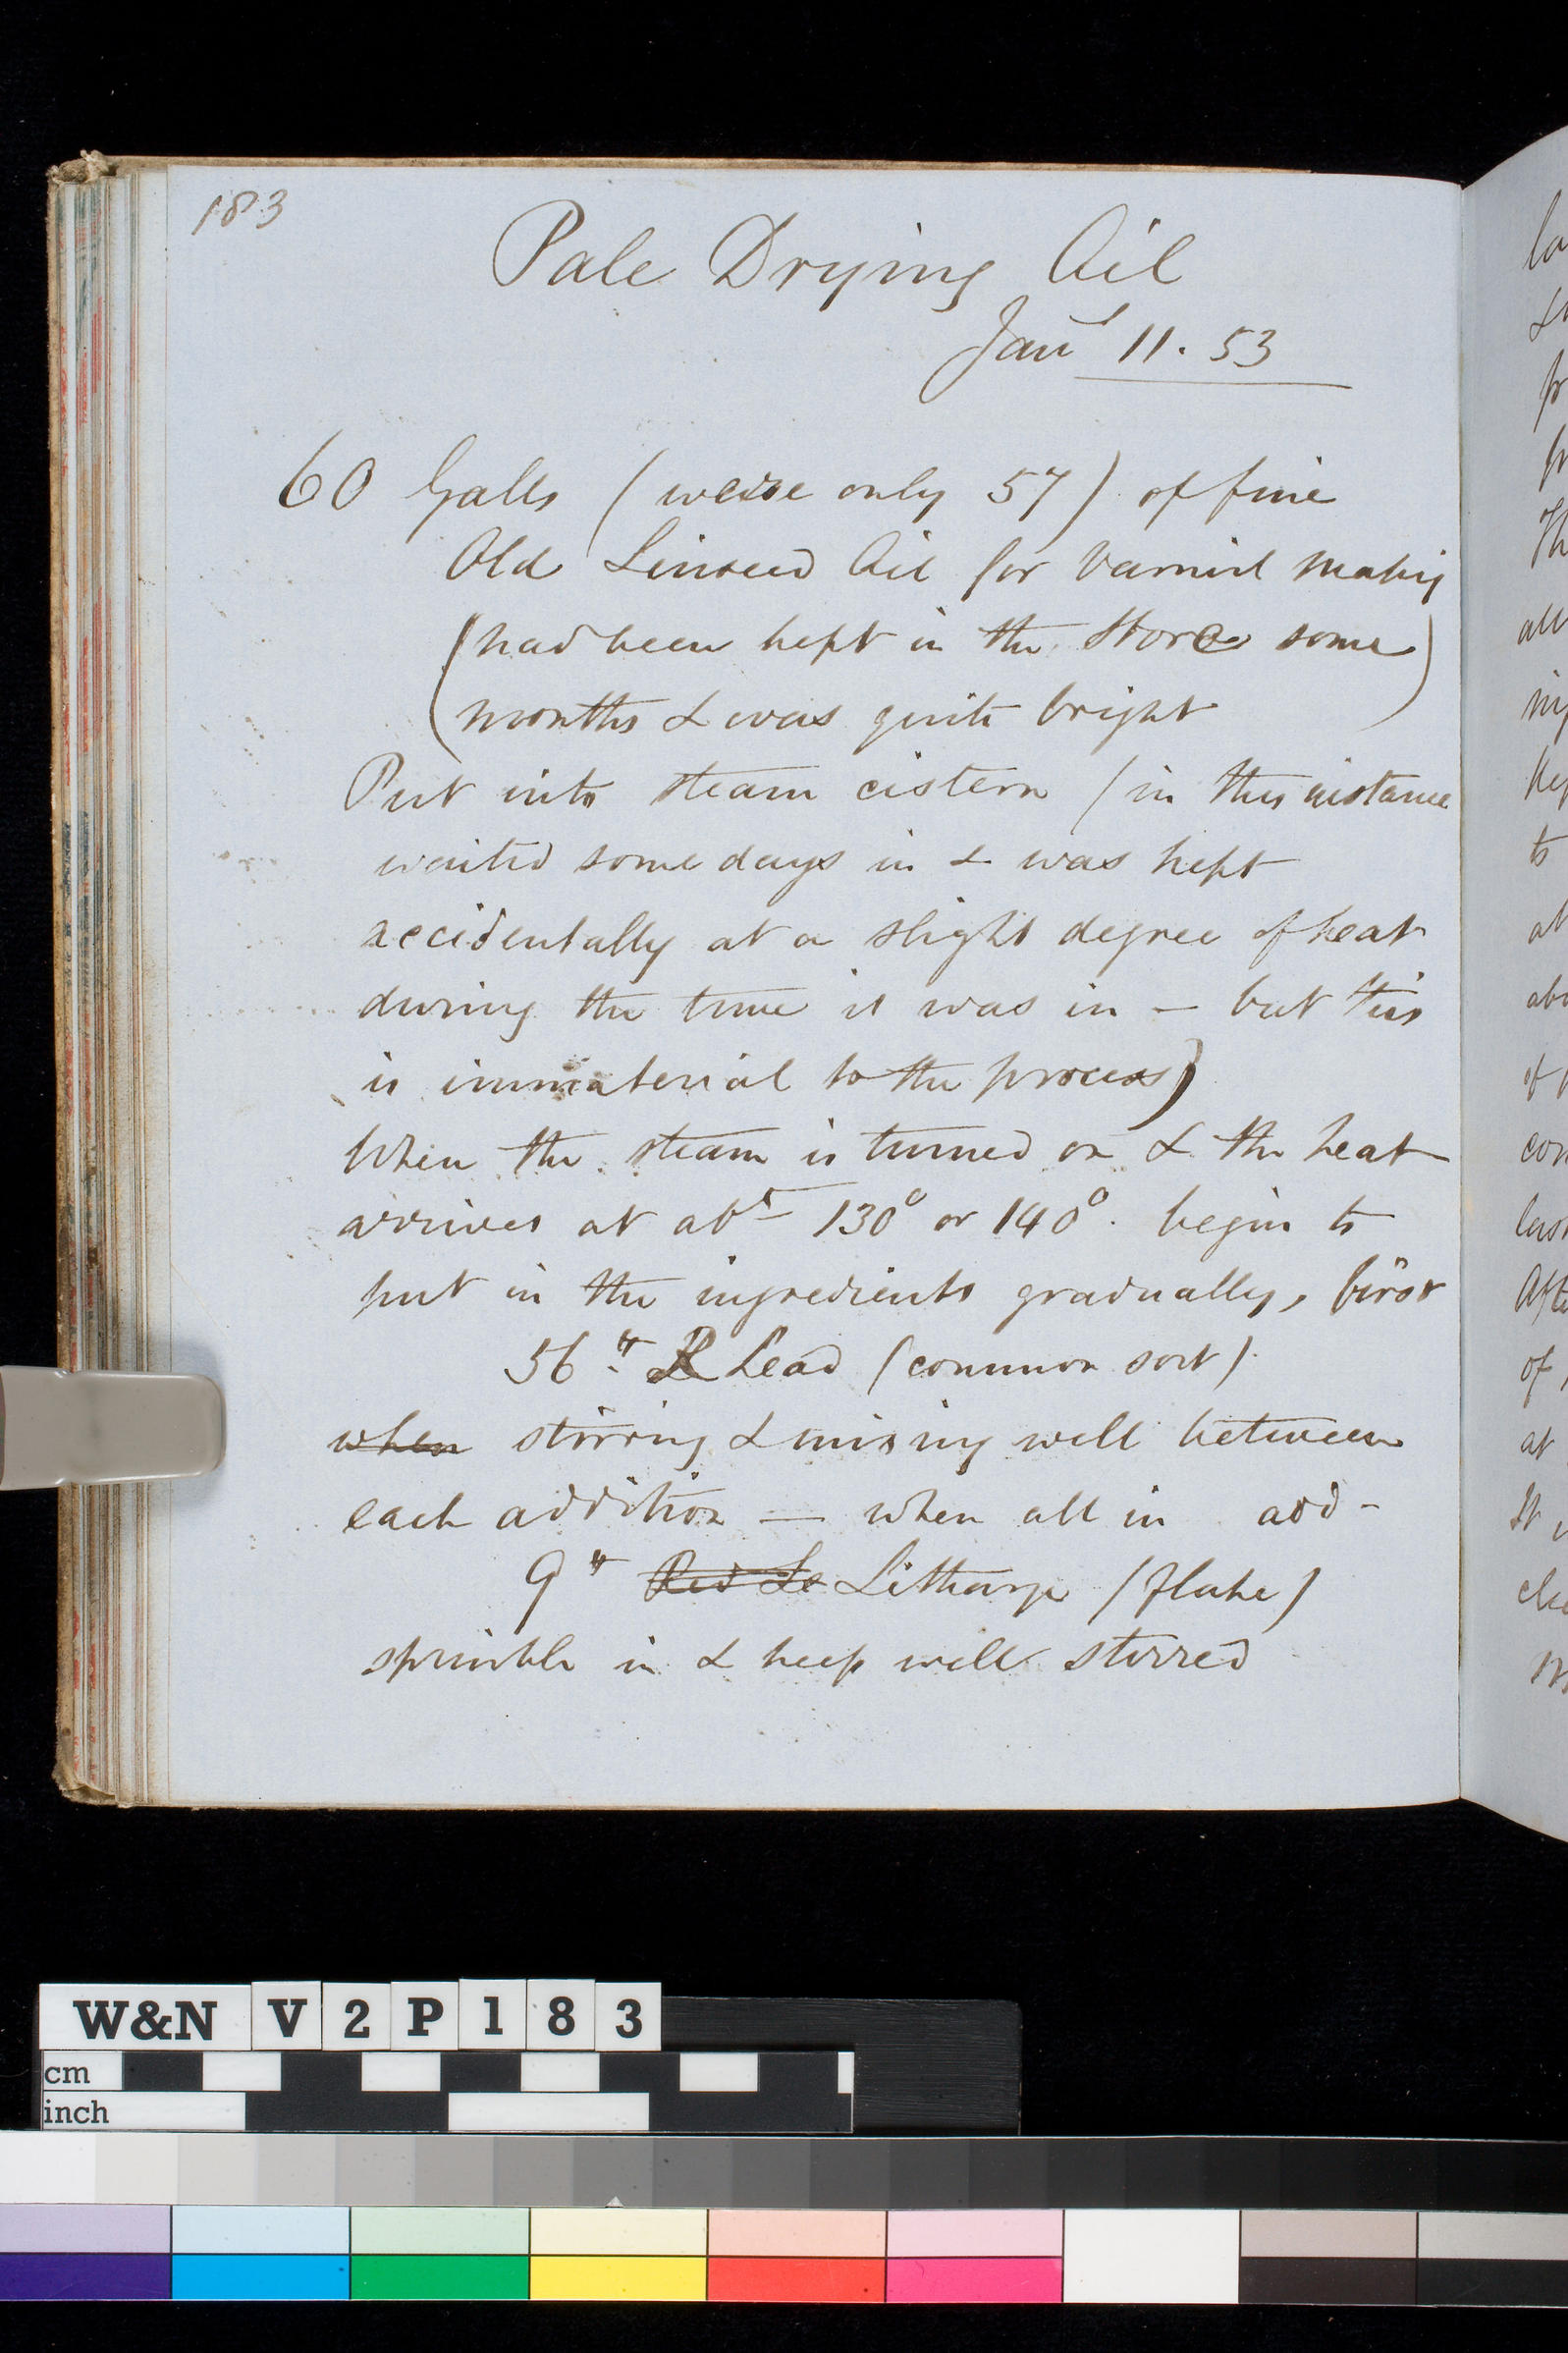 183
Pale Drying Oil
Jany 11. 53
60 Galls (were only 57) of fine
Old Linseed Oil for Varnish making
(had been kept in the store some)
(months & was quite bright
Put into steam cistern (in this instance
waited some days in & was kept
accidentally at a slight degree of heat
during the time it was in — but this
is immaterial to the process)
When the steam is turned on & the heat
arrives at abt 130° or 140°. begin to
put in the ingredients gradually, first
56 lb R Lead (common sort).
when stirring & mixing well between
each addition — when all in add -
9 lb Red Le Litharge (flake)
sprinkle in & keep well stirred
W&N V2P183
cm
inch